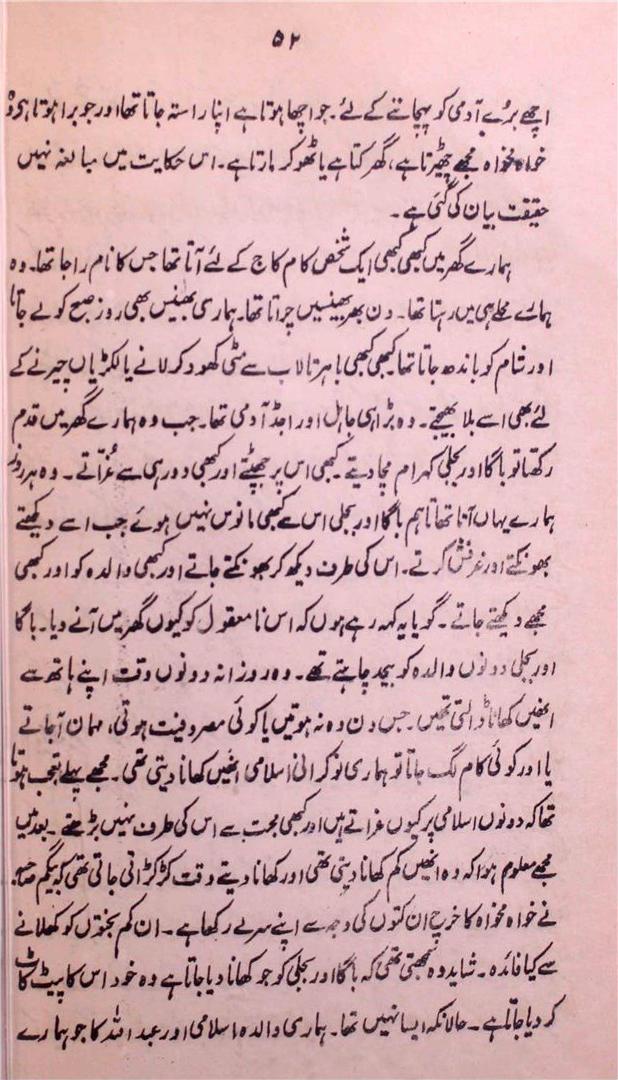 ۵۲
اچھے بُرے آدمی کو پہچاننے کے لئے۔ جو اچھا ہوتا ہے اپنا راستہ جاتا تھا اور جو برا ہوتا ہے وہ
خواہ مخواہ مجھے چھیڑتا ہے، گھرکتا ہے یا ٹھوکر مارتا ہے۔ اس حکایت میں مبالغہ نہیں
حقیقت بیان کی گئی ہے۔
ہمارے گھر میں کبھی کبھی ایک شخص کام کاج کے لئے آتا تھا جس کا نام راجا تھا۔ وہ
ہمارے محلے ہی میں رہتا تھا۔ دن بھر بھینسیں چراتا تھا۔ ہماری بھینس بھی روز صبح کو لے جاتا
اور شام کو باندھ جاتا تھا کبھی کبھی باہر تالاب سے مٹی کھود کر لانے یا لکڑیاں چیرنے کے
لئے بھی اسے بلا بھیجتے۔ وہ بڑا ہی جاہل اور اجڈ آدمی تھا۔ جب وہ ہمارے گھر میں قدم
رکھتا تو باگا اور بجلی کہرام مچا دیتے۔ کبھی اس پر جھپٹتے اور کبھی دور ہی سے غُرّاتے۔ وہ ہر روز
ہمارے یہاں آتا تھا تاہم باگا اور بجلی اس سے کبھی مانوس نہیں ہوئے جب اسے دیکھتے
بھونکتے اور غرفش کرتے۔ اس کی طرف دیکھ کر بھونکتے جاتے اور کبھی والدہ کو اور کبھی
مجھے دیکھتے جاتے۔ گویا یہ کہہ رہے ہوں کہ اس نامعقول کو کیوں گھر میں آنے دیا۔ باگا
اور بجلی دونوں والدہ کو بیحد چاہتے تھے۔ وہ روزانہ دونوں وقت اپنے ہاتھ سے
انھیں کھانا ڈالتی تھیں۔ جس دن وہ نہ ہوتیں یا کوئی مصروفیت ہوتی، مہمان آجاتے
یا اور کوئی کام لگ جاتا تو ہماری نوکرانی اسلامی انھیں کھانا دیتی تھی۔ مجھے پہلے تعجب ہوتا
تھا کہ دونوں اسلامی پر کیوں غراتے ہیں اور کبھی محبت سے اس کی طرف نہیں بڑھتے۔ بعد میں
مجھے معلوم ہوا کہ وہ انھیں کم کھانا دیتی تھی اور کھانا دیتے وقت کڑکڑاتی جاتی تھی کہ بیگم صاحبہ
نے خواہ مخواہ کا خرچ ان کتوں کی وجہ سے اپنے سر لے رکھا ہے۔ ان کم بختوں کو کھلانے
سے کیا فائدہ۔ شاید وہ سمجھتی تھی کہ باگا اور بجلی کو جو کھانا دیا جاتا ہے وہ خود اس کا پیٹ کاٹ
کر دیا جاتا ہے۔ حالانکہ ایسا نہیں تھا۔ ہماری والدہ اسلامی اور عبد اللہ کا جو ہمارے